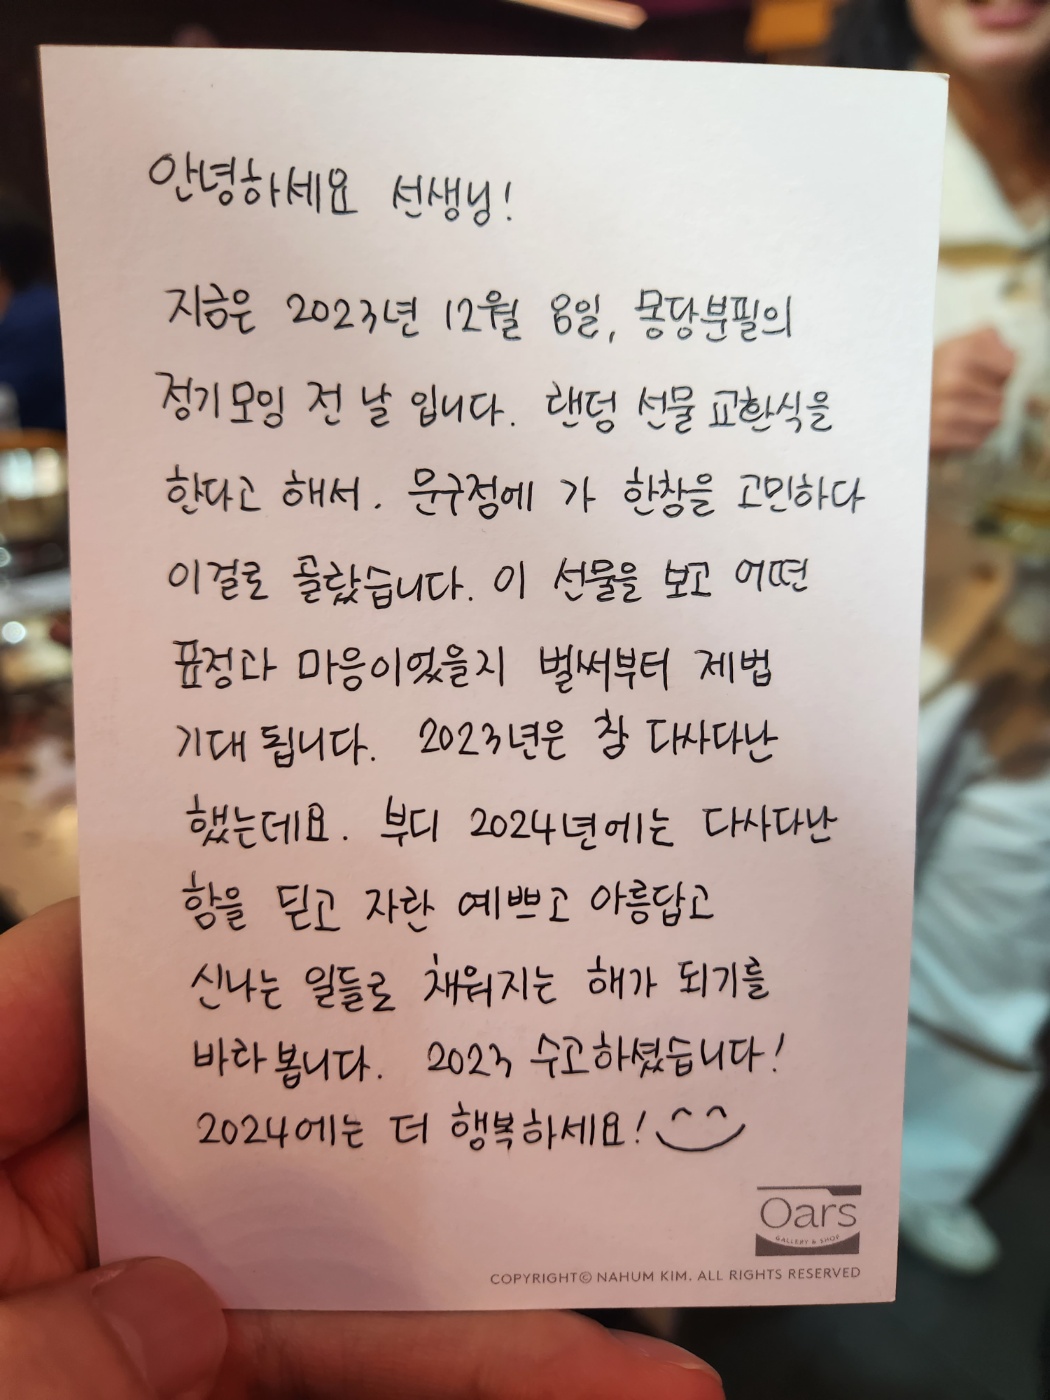 안녕하세요 선생님!
지금은 2023년 12월 8일, 몽당분필의
정기모임 전 날 입니다. 랜덤 선물 교환식을
한다고 해서. 문구점에 가 한창을 고민하다
이걸로 골랐습니다. 이 선물을 보고 어떤
표정과 마음이었을지 벌써부터 제법
기대 됩니다. 2023년은 참 다사다난
했는데요. 부디 2024년에는 다사다난
함을 딛고 자란 예쁘고 아름답고
신나는 일들로 채워지는 해가 되기를
바라봅니다. 2023 수고하셨습니다!
2024에는 더 행복하세요!
Oars
GALLERY & SHOP
COPYRIGHT© NAHUM KIM. ALL RIGHTS RESERVED